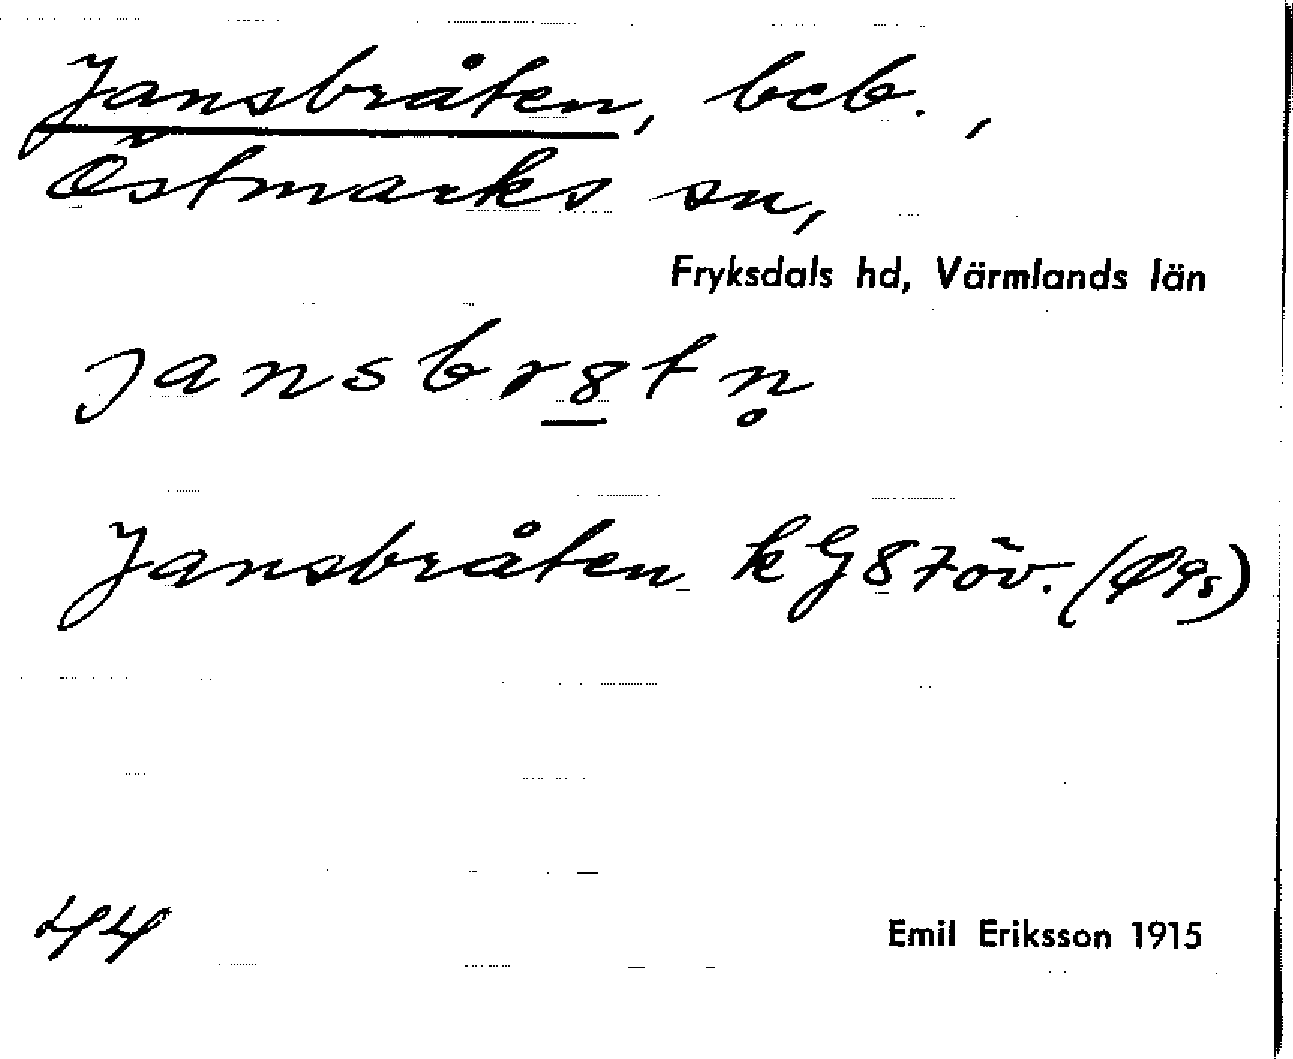 Jansbråten, beb.,
Östmarks sn,
Fryksdals hd, Värmlands län
jansbr8̲tn̥
Jansbråten kG87öv.
44
Emil Eriksson 1915